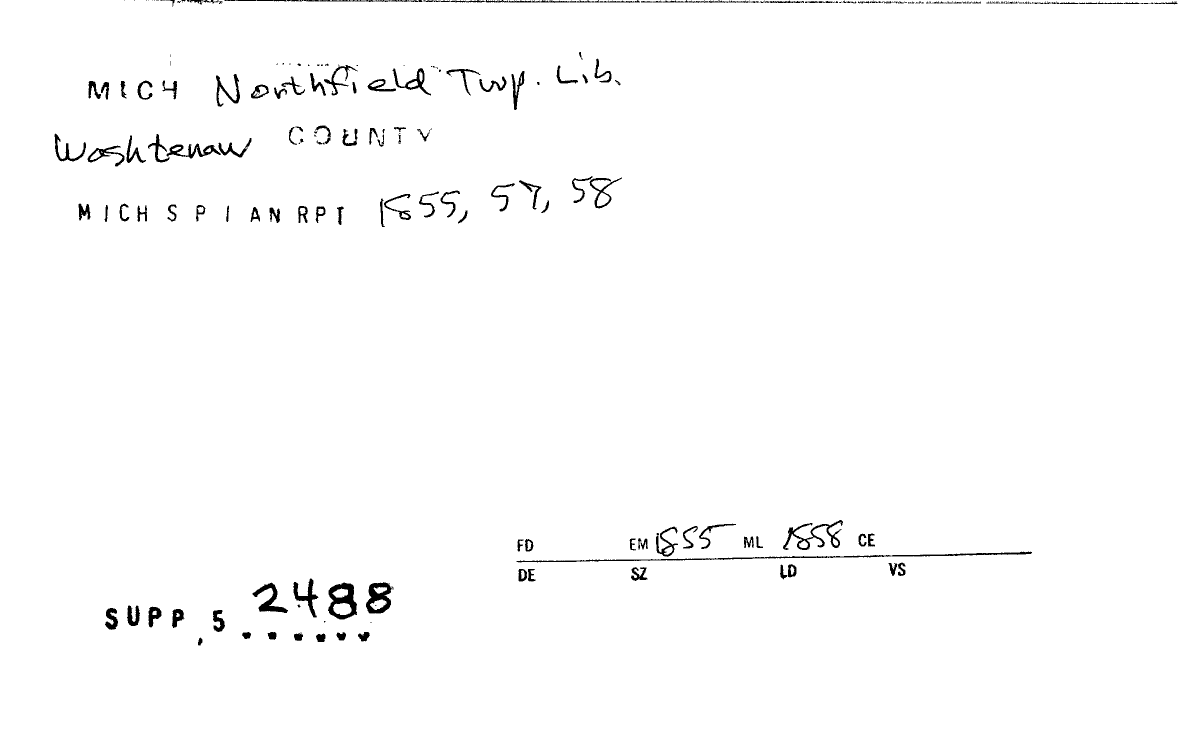 MICH Northfield Twp. Lib.
Washtenaw COUNTY
MICH S P I AN RPT 1855, 57, 58
FD EM 1855 ML 1858 CE
DE SZ LD VS
SUPP, 5 2488